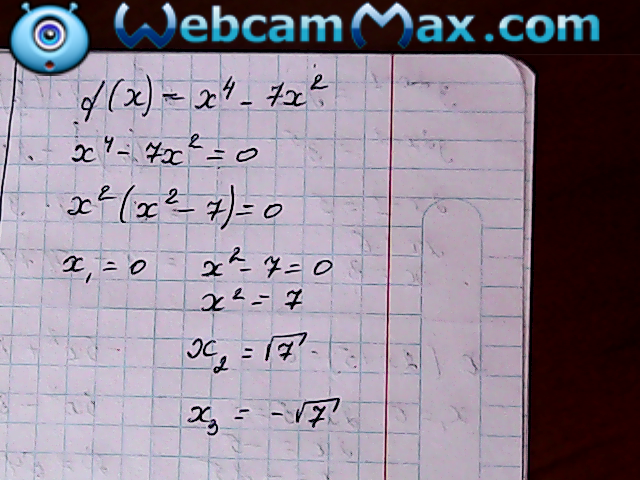 WebcamMax.com
f(x) = x⁴ - 7x²
x⁴ - 7x² = 0
x² (x² - 7) = 0
x₁ = 0 x² - 7 = 0
x² = 7
x₂ = √7
x₃ = -√7